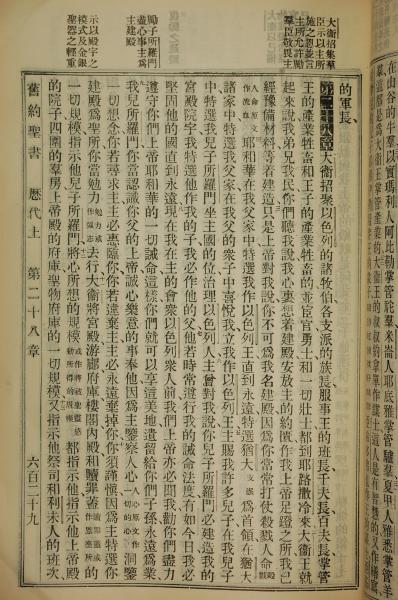 在山谷的牛羣以實瑪利人阿比勒掌管駝羣米崙人耶底雅掌管驢羣夏甲人雅悉掌管羊
羣這都是爲大衛王掌管產業的大衛王的叔叔約拿單作謀士這人是有智慧的又作書記
的軍長
第二十八章大衛招聚以色列的諸牧伯各支派的族長服事王的班長千夫長百夫長掌管
王的產業牲畜的並王子的產業牲畜的並臣官勇士和一切壯士都到耶路撒冷來大衛王就
起來說我弟兄我民你們聽我說我心裏想着建殿安放主的約匱作我上帝足凳之所我已
經豫備材料等着建造只是上帝對我說你不可爲我名建殿因爲你常常打仗殺戮人命
耶和華我在我父家中特選我作以色列王直到永遠特選猶大爲首領在猶大
諸家中特選我父家在我父的衆子中喜悅我立我作以色列王主賜我許多兒子在我兒子
中特選我兒子所羅門坐主國的位治理以色列人主曾對我說你兒子所羅門必建造我的
宮殿院宇我特選他作我的子我必作他的父他若時常遵行我的誡命法度有如今日我必
堅固他的國直到永遠現在我在主的會衆以色列衆人前我們上帝亦必聞我勸你們盡力
遵守你們上帝耶和華的一切誡命這樣你們就可以享這美地遺留給你們子孫永遠爲業
我兒所羅門你當認識你父的上帝誠心樂意的事奉他因爲主鑒察人心洞鑒
一切想念你若尋求主主必惠臨你你若違棄主主必永遠棄掉你你須謹愼因爲主特選你
建殿爲聖所你當勉力去行大衛將宮殿游廊府庫樓閣內殿和贖罪蓋的
一切規模指示他兒子所羅門將心所想的規模都指示他指示他上帝殿
的院子四圍的羣房上帝殿的府庫聖物府庫的一切規模又指示他祭司和利未人的班次
大衛招集羣
臣示以主所
施之恩並言
主所允許勵
羣臣敬畏主
勵子所羅門
盡心事主爲
主建殿
示以殿宇之
模式及金銀
聖器之輕重
舊約聖書 歷代上 第二十八章 六百二十九